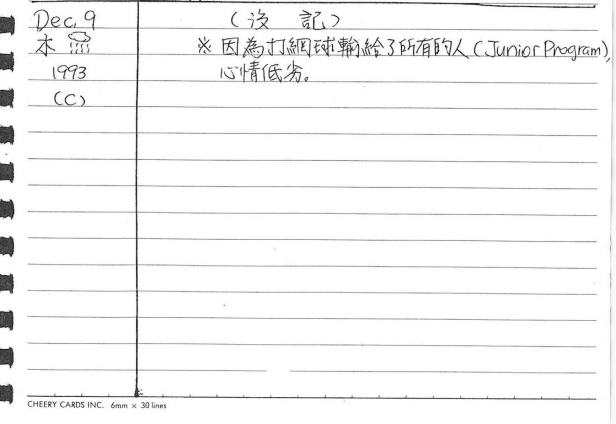 Dec. 9
木
1993
(C)
(沒 記)
※ 因為打網球輸給了所有的人 (Junior Program),
心情低劣。
CHEERY CARDS INC. 6mm × 30 lines